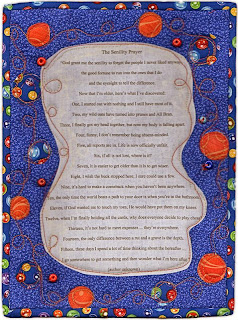 The Senility Prayer
"God grant me the senility to forget the people I never liked anyway,
the good fortune to run into the ones that I do
and the eyesight to tell the difference.
Now that I'm older, here's what I've discovered:
One, I started out with nothing and I still have most of it.
Two, my wild oats have turned into prunes and All Bran.
Three, I finally got my head together, but now my body is falling apart.
Four, funny, I don't remember being absent-minded.
Five, all reports are in; Life is now officially unfair.
Six, if all is not lost, where is it?
Seven, it is easier to get older than it is to get wiser.
Eight, I wish the buck stopped here, I sure could use a few.
Nine, it's hard to make a comeback when you haven't been anywhere.
Ten, the only time the world beats a path to your door is when you're in the bathroom.
Eleven, if God wanted me to touch my toes, He would have put them on my knees.
Twelve, when I'm finally holding all the cards, why does everyone decide to play chess?
Thirteen, it's not hard to meet expenses... they're everywhere.
Fourteen, the only difference between a rut and a grave is the depth.
Fifteen, these days I spend a lot of time thinking about the hereafter
I go somewhere to get something and then wonder what I'm here after.
(author unknown)